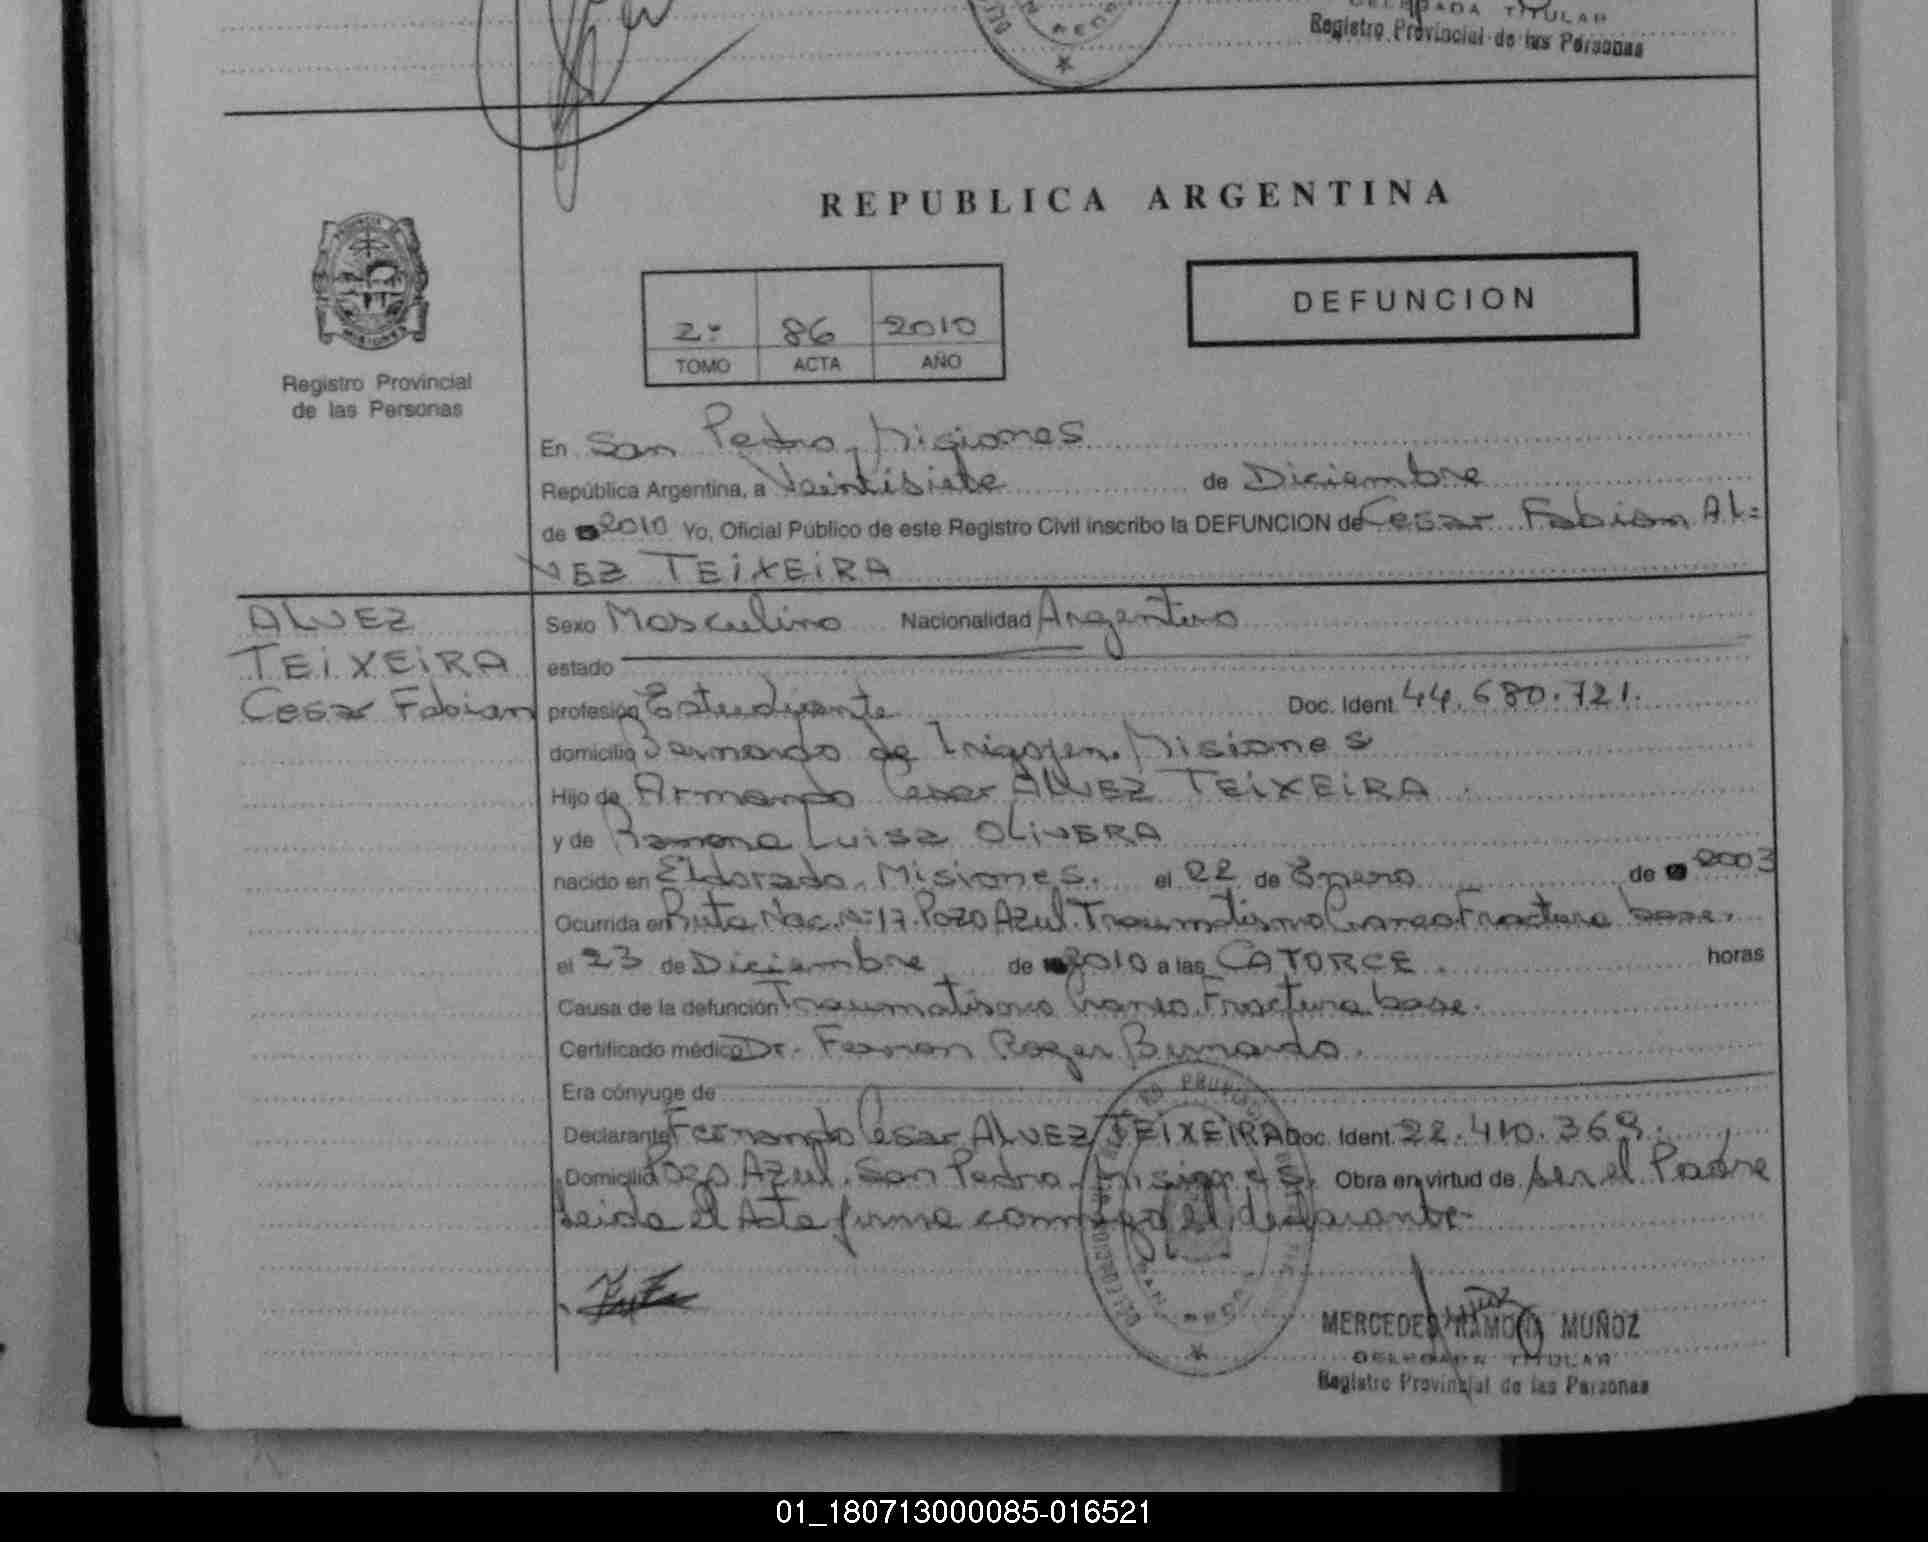 DELEGADA TITULAR
Registro Provincial de las Personas
REPUBLICA ARGENTINA
DEFUNCION
2º 86 2010
TOMO ACTA AÑO
Registro Provincial
de las Personas
En San Pedro, Misiones
República Argentina, a Veintisiete de Diciembre
de 2010 Yo, Oficial Público de este Registro Civil inscribo la DEFUNCION de Cesar Fabian AL=
VEZ TEIXEIRA
ALVEZ
TEIXEIRA
Cesar Fabian
Sexo Masculino Nacionalidad Argentino
estado
profesión Estudiante Doc. Ident. 44.680.721.
domicilio Bernardo de Irigoyen. Misiones
Hijo de Armando Cesar ALVEZ TEIXEIRA
y de Ramona Luisa OLIVERA
nacido en Eldorado. Misiones. el 22 de Enero de 2003
Ocurrida en Ruta Nac. Nº 17. Pozo Azul. Traumatismo Craneo Fractura base.
el 23 de Diciembre de 2010 a las CATORCE. horas
Causa de la defunción Traumatismo Craneo. Fractura base.
Certificado médico Dr. Roger Bernardo.
Era cónyuge de
Declarante Fernando Cesar ALVEZ TEIXEIRA Doc. Ident. 22.410.369.
Domicilio Pozo Azul. San Pedro. Misiones. Obra en virtud de ser el Padre
Leida el Acta firma conmigo el declarante.
MERCEDES RAMONA MUÑOZ
DELEGADA TITULAR
Registro Provincial de las Personas
01_180713000085-016521